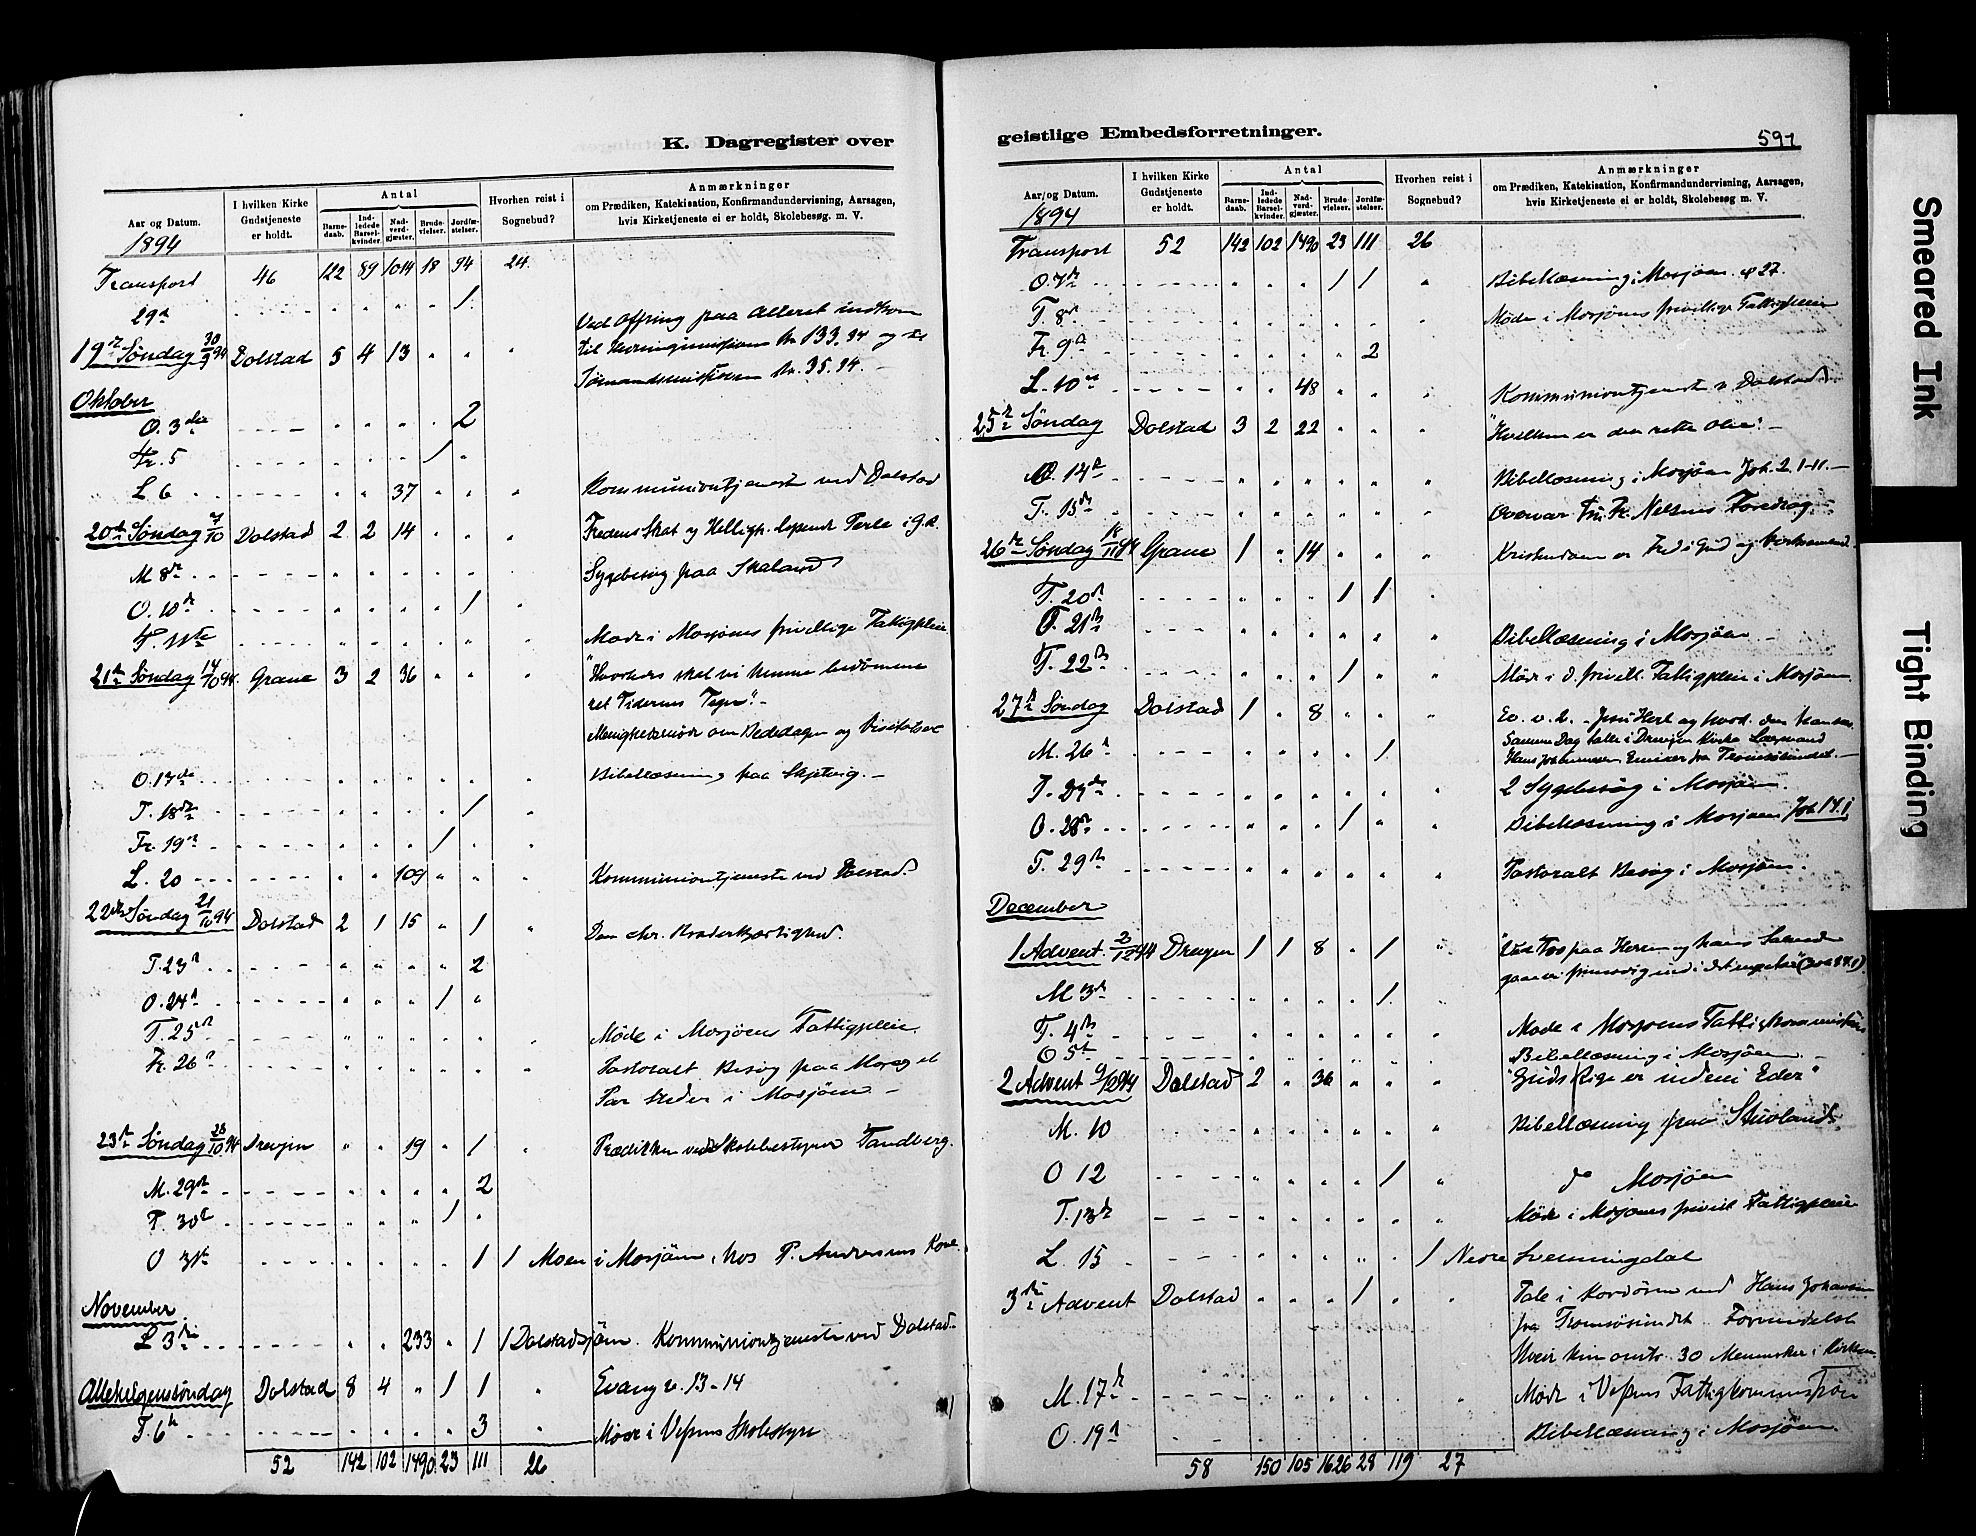 K. Dagregister over
Aar og Datum. | I hvilken Kirke Gudstjeneste er holdt. | Antal | Barne-daab. | Ind-ledede Barsel-kvinder. | Nad-verd-gjæster. | Brude-vielser. | Jordfæ-stelser. | Hvorhen reist i Sognebud? | Anmærkninger
om Prædiken, Katekisation, Konfirmandundervisning, Aarsagen,
hvis Kirketjeneste ei er holdt, Skolebesøg m. V.
1894
Transport 46 122 89 1014 18 94 24
29de 1
Ved Offring paa Alteret indkom
19de Søndag 30/9 94 Dolstad 5 4 13 til Hedningemissionen Kr. 133.94 og til
Sømandsmissionen Kr. 35.94.
Oktober
O. 3die 2
Fr. 5 1
L 6 37 Kommuniontjeneste ved Dolstad
20de Søndag 7/10 Dolstad 2 2 14 Fredens Skat og Helligh. Perle i G.R.
M 8de Sygebesøg paa Skaland
O. 10de 1
T. 11te Møde i Mosjøens frivillige Fattigpleie
21de Søndag 14/10 94. Grane 3 2 36 "Hvorledes skal vi kunne bedømme
ret Tidernes Tegn". -
Menighedsmøde om Bededagen og
O. 17de Bibellæsning paa Skjervig. -
T. 18de 1
Fr. 19de 1
L. 20 109 Kommuniontjeneste ved Dolstad.
22de Søndag 21/10 94 Dolstad 2 1 15 1 Den chr. Broderkjærlighed.
T. 23de 2
O. 24de 1
T. 25de Møde i Mosjøens Fattigpleie.
Fr. 26de Pastoralt Besøg paa Moen og et
Par Steder i Mosjøen -
23de Søndag 28/10 94 Drevjen 19 1 Prædiken ved Skolebestyrer Tandberg.
M. 29de 2
T. 30de 1
O 31te 1 1 Moen i Mosjøen, hos P. Andersens Kone.
November
L 3die 233 1 1 Dolstadsjøen. Kommuniontjeneste ved Dolstad.
Allehelgenssøndag Dolstad 8 4 1 1 Evang v. 13-14
T. 6te 3 Møde i Vefsens Skolestyre
52 142 102 1490 23 111 26
geistlige Embedsforretninger. 591
Aar og Datum. | I hvilken Kirke Gudstjeneste er holdt. | Antal | Barne-daab. | Ind-ledede Barsel-kvinder. | Nad-verd-gjæster. | Brude-vielser. | Jordfæ-stelser. | Hvorhen reist i Sognebud? | Anmærkninger
om Prædiken, Katekisation, Konfirmandundervisning, Aarsagen,
hvis Kirketjeneste ei er holdt, Skolebesøg m. V.
1894
Transport 52 142 102 1490 23 111 26
O. 7de 1 1 Bibellæsning i Mosjøen. 27.
T. 8de Møde i Mosjøens frivillige Fattigpleie
Fr. 9de 2
L. 10de 48 Kommuniontjeneste v Dolstad.
25de Søndag Dolstad 3 2 22 "Hvilken er den rette Olie". -
O. 14de Bibellæsning i Mosjøen Joh. 2. 1-11. -
T. 15de Overvar Fr. Nelsens Foredrag. -
26de Søndag 18/11 94 Grane 1 14 Kristendom er Fred i Gud og
T. 20de 1 1
O. 21de Bibellæsning i Mosjøen -
T. 22de 1 Møde i d. frivill. Fattigpleie i Mosjøen.
27de Søndag Dolstad 1 8 Ev. v. 2. - Jesu
Samme Dag talte i Drevjen Kirke
M. 26de 1 Hans Johannesen Emissær fra Tromsøstiftet. -
T. 27de 2 Sygebesøg i Mosjøen.
O. 28de 1 Bibellæsning i Mosjøen Joh 14.1
T. 29de Pastoralt Besøg i Mosjøen.
December
1 Advent. 2/12 94 Drevjen 1 1 8 1 "Ved Tro paa Herren og hans
gaa vi
M 3de 1
T. 4de Møde i Mosjøens Fattigkommission
O 5te Bibellæsning i Mosjøen. -
2 Advent 9/12 94 Dolstad 2 36 "Guds Rige er indeni Eder"
M. 10 Bibellæsning paa
O 12 1 do Mosjøen
T. 13de Møde i Mosjøens frivill Fattigpleie
L. 15 1 Nedre Svenningdal
3die Advent Dolstad 1 Tale i Kordøren ved Hans Johansen
fra
kun omtr. 30 Mennesker i Kirken
M. 17de Møde i Vefsens Fattigkommission
O. 19de Bibellæsning i Mosjøen.
58 150 105 1626 28 119 27
Smeared Ink
Tight Binding